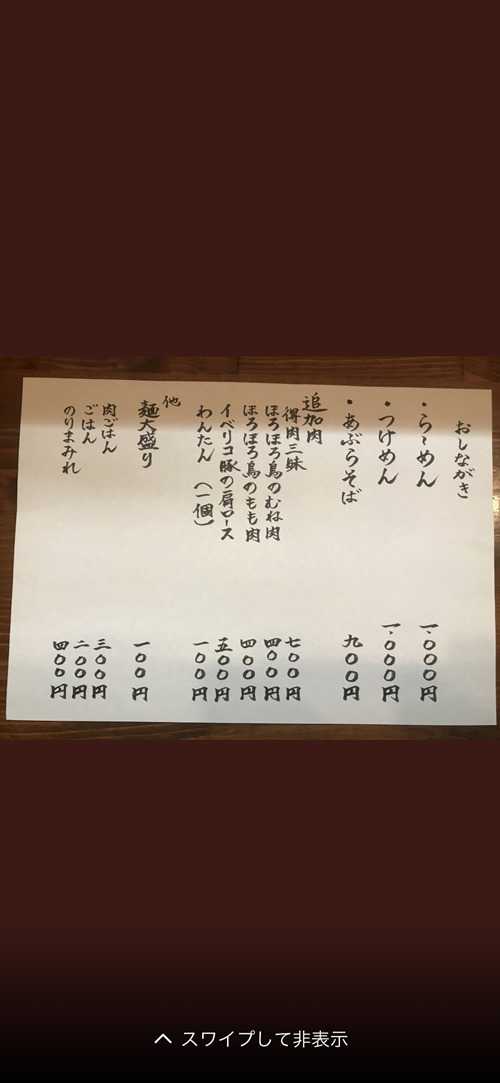 おしながき
・らーめん 一、〇〇〇円
・つけめん 一、〇〇〇円
・あぶらそば 九〇〇円
追加肉
得肉三昧 七〇〇円
ほろほろ鳥のむね肉 四〇〇円
ほろほろ鳥のもも肉 四〇〇円
イベリコ豚の肩ロース 五〇〇円
わんたん (一個) 一〇〇円
他
麺大盛り 一〇〇円
肉ごはん 三〇〇円
ごはん 二〇〇円
のりまみれ 四〇〇円
スワイプして非表示